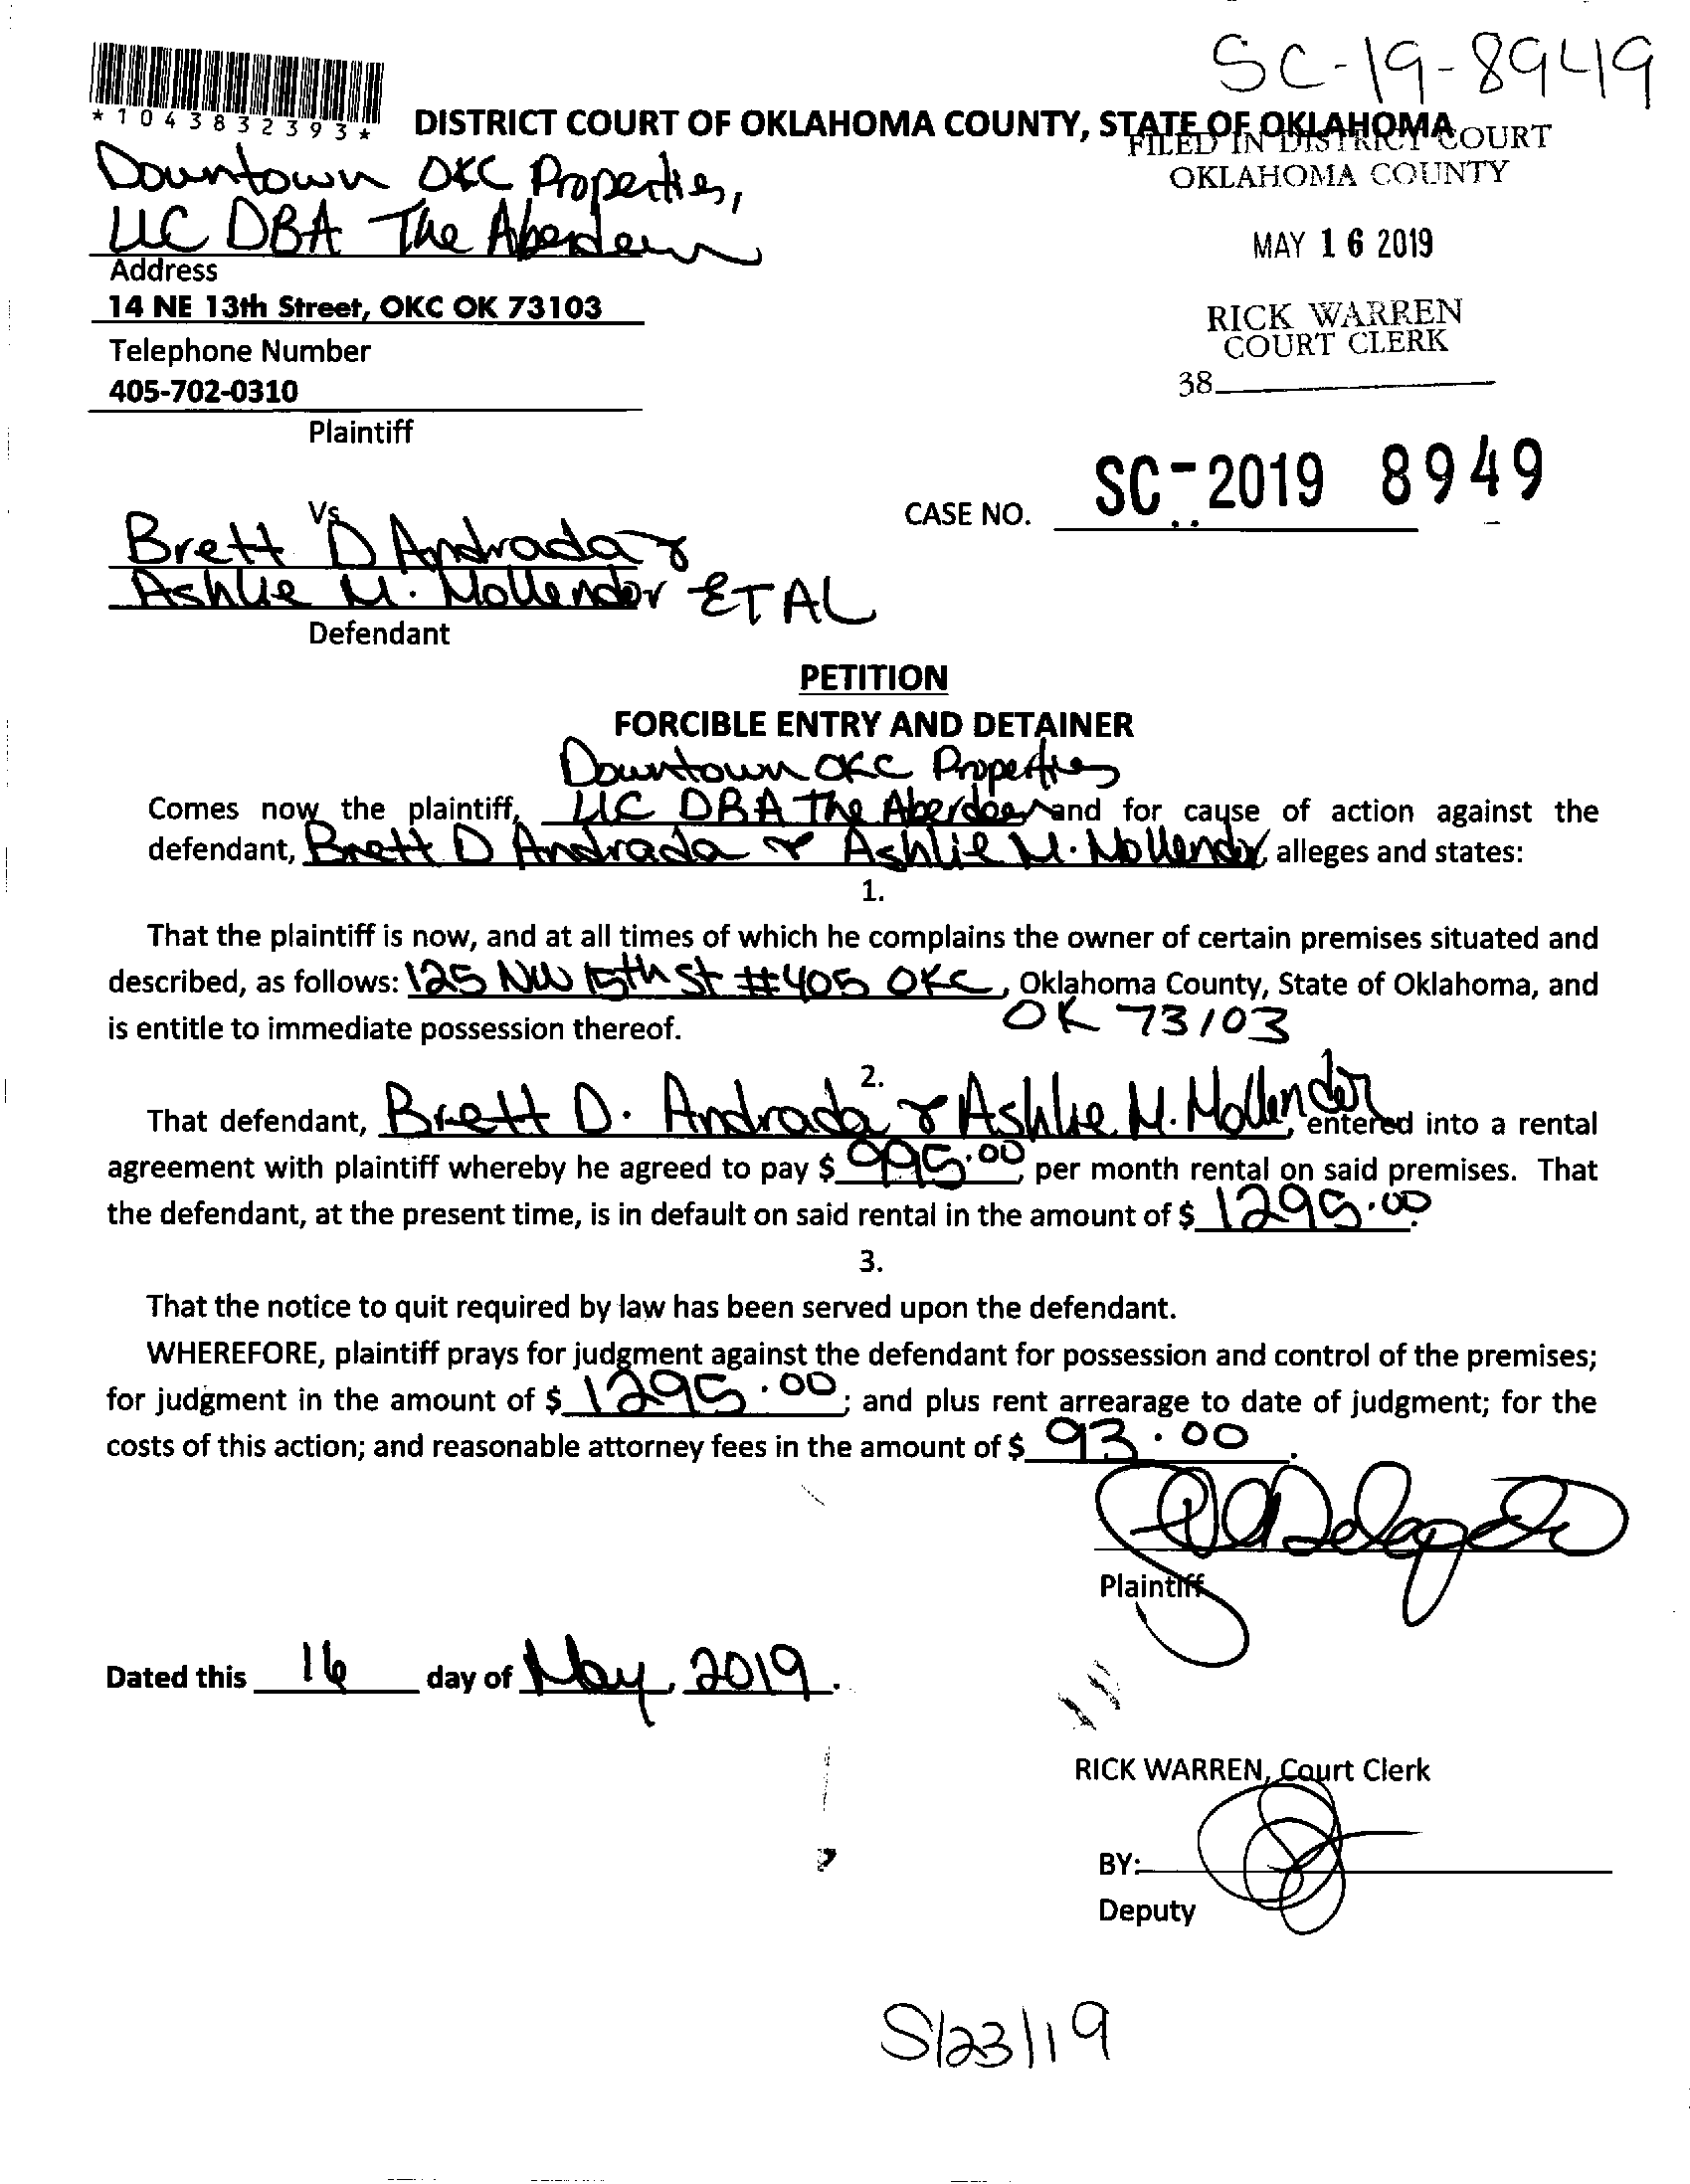 SC-19-8949
*1043832393*
DISTRICT COURT OF OKLAHOMA COUNTY, STATE OF OKLAHOMA
FILED IN DISTRICT COURT
OKLAHOMA COUNTY
Downtown OKC Properties,
LLC DBA The Aberdeen
MAY 16 2019
Address
14 NE 13th Street, OKC OK 73103
RICK WARREN
COURT CLERK
Telephone Number
38
405-702-0310
Plaintiff
SC-2019 8949
CASE NO.
Vs
Brett D Andrada &
Ashlie M. Mollendor ETAL
Defendant
PETITION
FORCIBLE ENTRY AND DETAINER
Downtown OKC Properties
Comes now the plaintiff, LLC DBA The Aberdeen and for cause of action against the
defendant, Brett D Andrada & Ashlie M. Mollendor, alleges and states:
1.
That the plaintiff is now, and at all times of which he complains the owner of certain premises situated and
described, as follows: 125 NW 15th St #405 OKC, Oklahoma County, State of Oklahoma, and
OK 73103
is entitle to immediate possession thereof.
2.
That defendant, Brett D. Andrada & Ashlie M. Mollendor, entered into a rental
agreement with plaintiff whereby he agreed to pay $ 995.00, per month rental on said premises. That
the defendant, at the present time, is in default on said rental in the amount of $ 1295.00.
3.
That the notice to quit required by law has been served upon the defendant.
WHEREFORE, plaintiff prays for judgment against the defendant for possession and control of the premises;
for judgment in the amount of $ 1295.00; and plus rent arrearage to date of judgment; for the
costs of this action; and reasonable attorney fees in the amount of $ 93.00.
Plaintiff
Dated this 16 day of May, 2019.
RICK WARREN, Court Clerk
BY:
Deputy
5/23/19